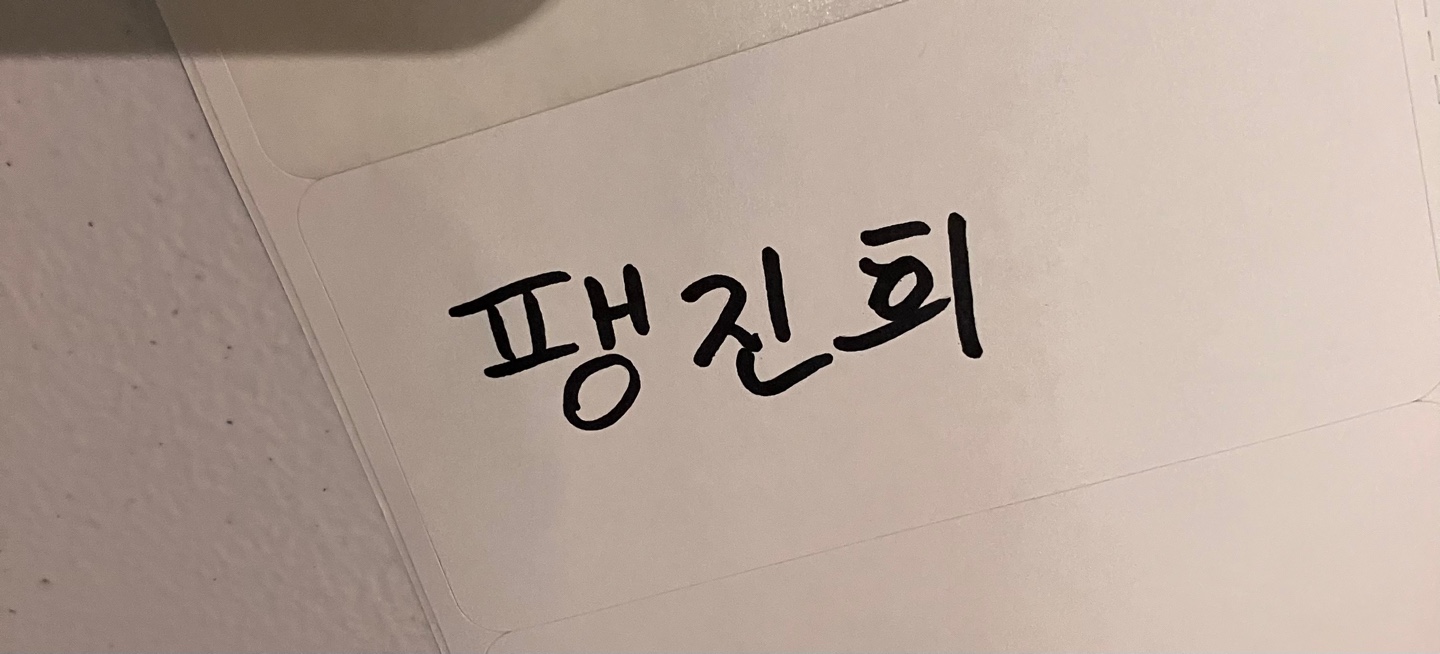 팽진회